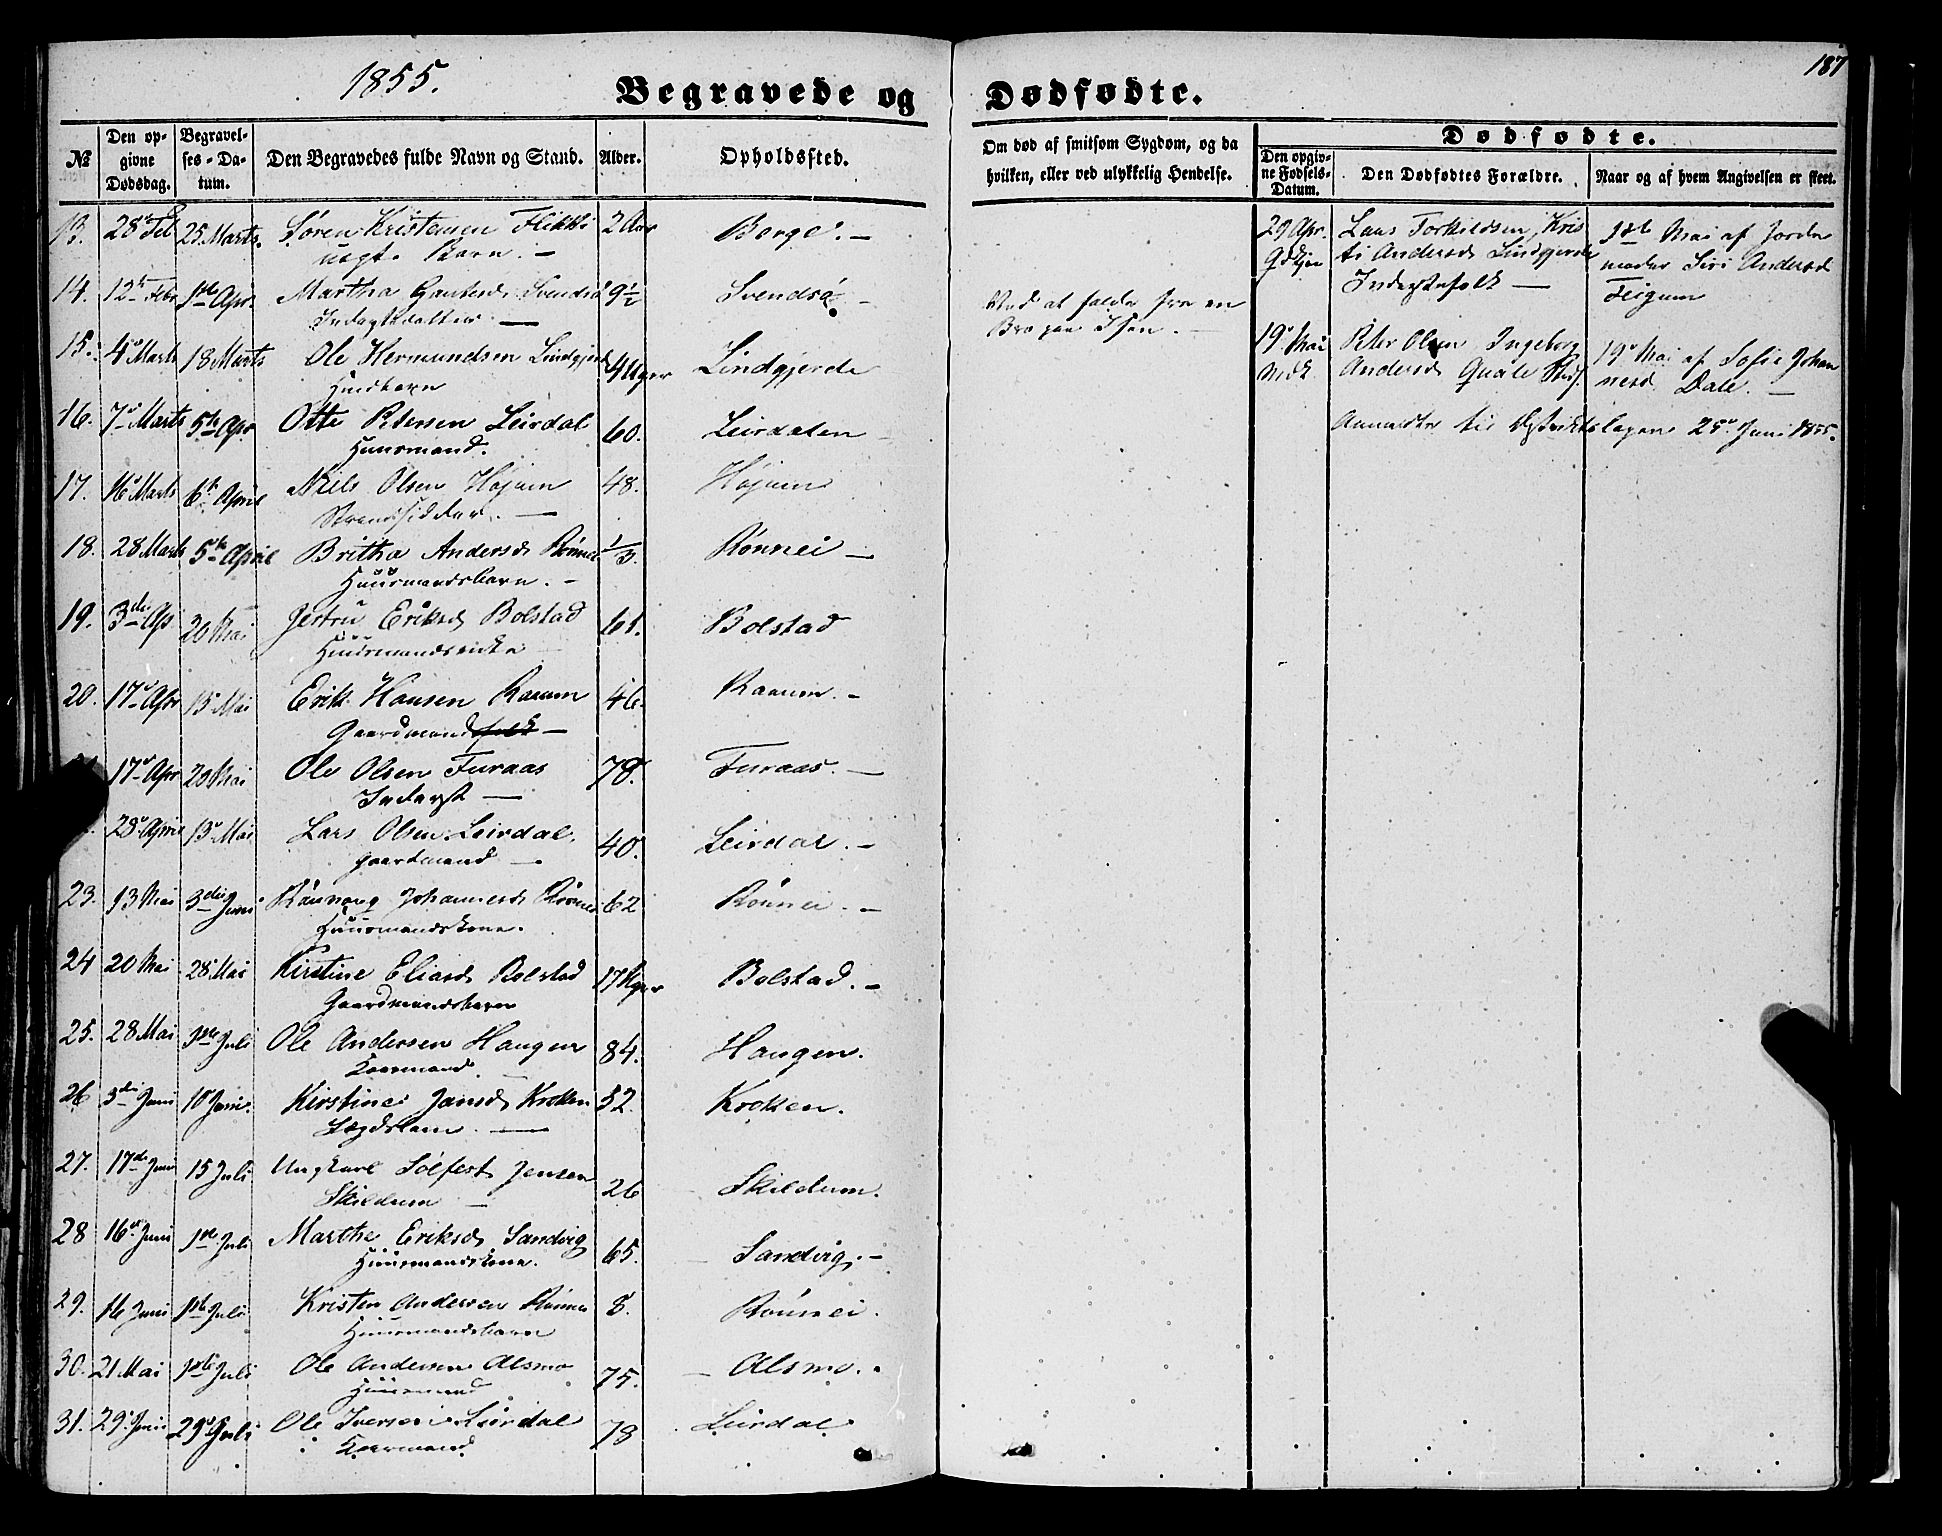 187
1855.
Begravede og Dødfødte.
№
Den opgivne Dødsdag.
Begravelses-Datum.
Den Begravedes fulde Navn og Stand.
Alder.
Opholdssted.
Om død af smitsom Sygdom, og da hvilken, eller ved ulykkelig Hendelse.
Dødfødte.
Den opgivne Fødsels-Datum.
Den Dødfødtes Forældre.
Naar og af hvem Angivelsen er skeet.
13. 28de Feb 25 Marts. Søren Kristensen Flikki 2 Aar Borge. —
Barn. —
14. 12te Febr 1ste Apr Martha Gautesd Svendsø 9½ Svendsø —
Ved at falde fra en
Bro paa Isen. —
15. 4de Marts 18 Marts Ole Hermundsen Lindgjerde 4 Uger Lindgjerde
16. 7de Marts 5te Apr Otte Petersen Leirdal 60. Leirdalen
Huusmand.
17. 16de Marts 6te April Niels Olsen Højum 48. Højum
Strandsidder. —
18. 28 Marts 5te April Britha Andersd Rønnei ⅓. Rønnei —
Huusmandsbarn. —
19. 3die Ap 20 Mai Jertru Eriksd Bolstad 61. Bolstad
Huusmandsenke
20. 17de Apr 13 Mai Erik Hansen Raaum 46. Raaum. —
Gaardmandsfolk —
17de Apr 20 Mai Ole Olsen Furaas 78. Furaas. —
Inderst —
28de April 13de Mai Lars Olsen Leirdal. 40. Leirdal. —
Gaardmand —
23. 13 Mai 3die Juni Rønnaug Johannesd Rønnei 62 Rønnei. —
Huusmandskone.
24 20 Mai 28 Mai Kirstine Eliasd Bolstad 17 Uger Bolstad. —
Gaardmandsbarn
25. 28 Mai 1ste Juli Ole Andersen Haugen 84. Haugen.
Kaarmand.
26 3die Juni 10 Juni. Kirstine Jensd Kroken 52. Kroken.
Lægdslem. —
27. 17de Juni 15 Juli Ungkarl Solfest Jensen 26 Skildum.
Skildum —
28 16de Juni 1ste Juli Marthe Eriksd Sandvig 65. Sandvig. —
Huusmandskone.
29. 16 Juni 1ste Juli Kristen Andersen Rønnei 8. Rønnei.
Huusmandsbarn
30. 21 Mai 1ste Juli Ole Andersen Alsmo 75. Alsmo.
Huusmand
31. 29de Juni 29de Juli Ole Iversen Leirdal 78 Leirdal
Kaarmand
29 Apr. Lars Torkildsen, Kris 1ste Mai af Jorde
ti Andersd Lindgjerde moder Siri Andersd
Inderstefolk — Feigum
19de Mai Peter Olsen Ingeborg 19de Mai af Sofie Johan
Andersd Quale nesd Dale. —
Anmeldte til Distriktslægen 25de Juni 1855.